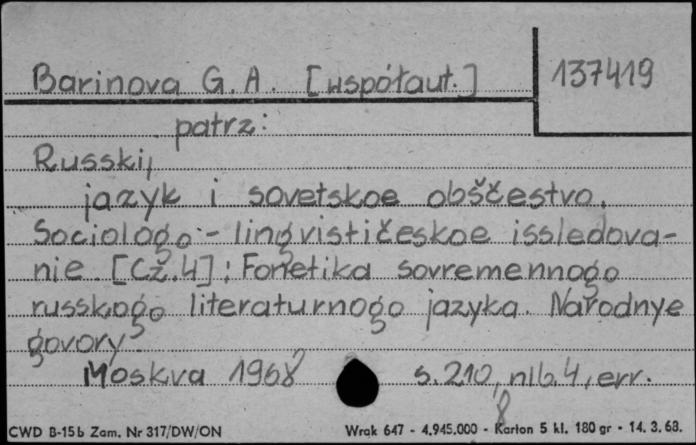 Barinova G. A. [współaut.]
137419
patrz:
Russkij
jazyk i sovetskoe obščestvo.
Sociologo-lingvističeskoe issledova-
nie. [Cz.4]: Fonetika sovremennogo
russkogo literaturnogo jazyka. Narodnye
govory.
Moskva 1968 s. 210, nlb. 4, err.
8
CWD B-15b Zam. Nr 317/DW/ON
Wrak 647 - 4.945.000 - Karton 5 kl. 180 gr - 14. 3. 68.